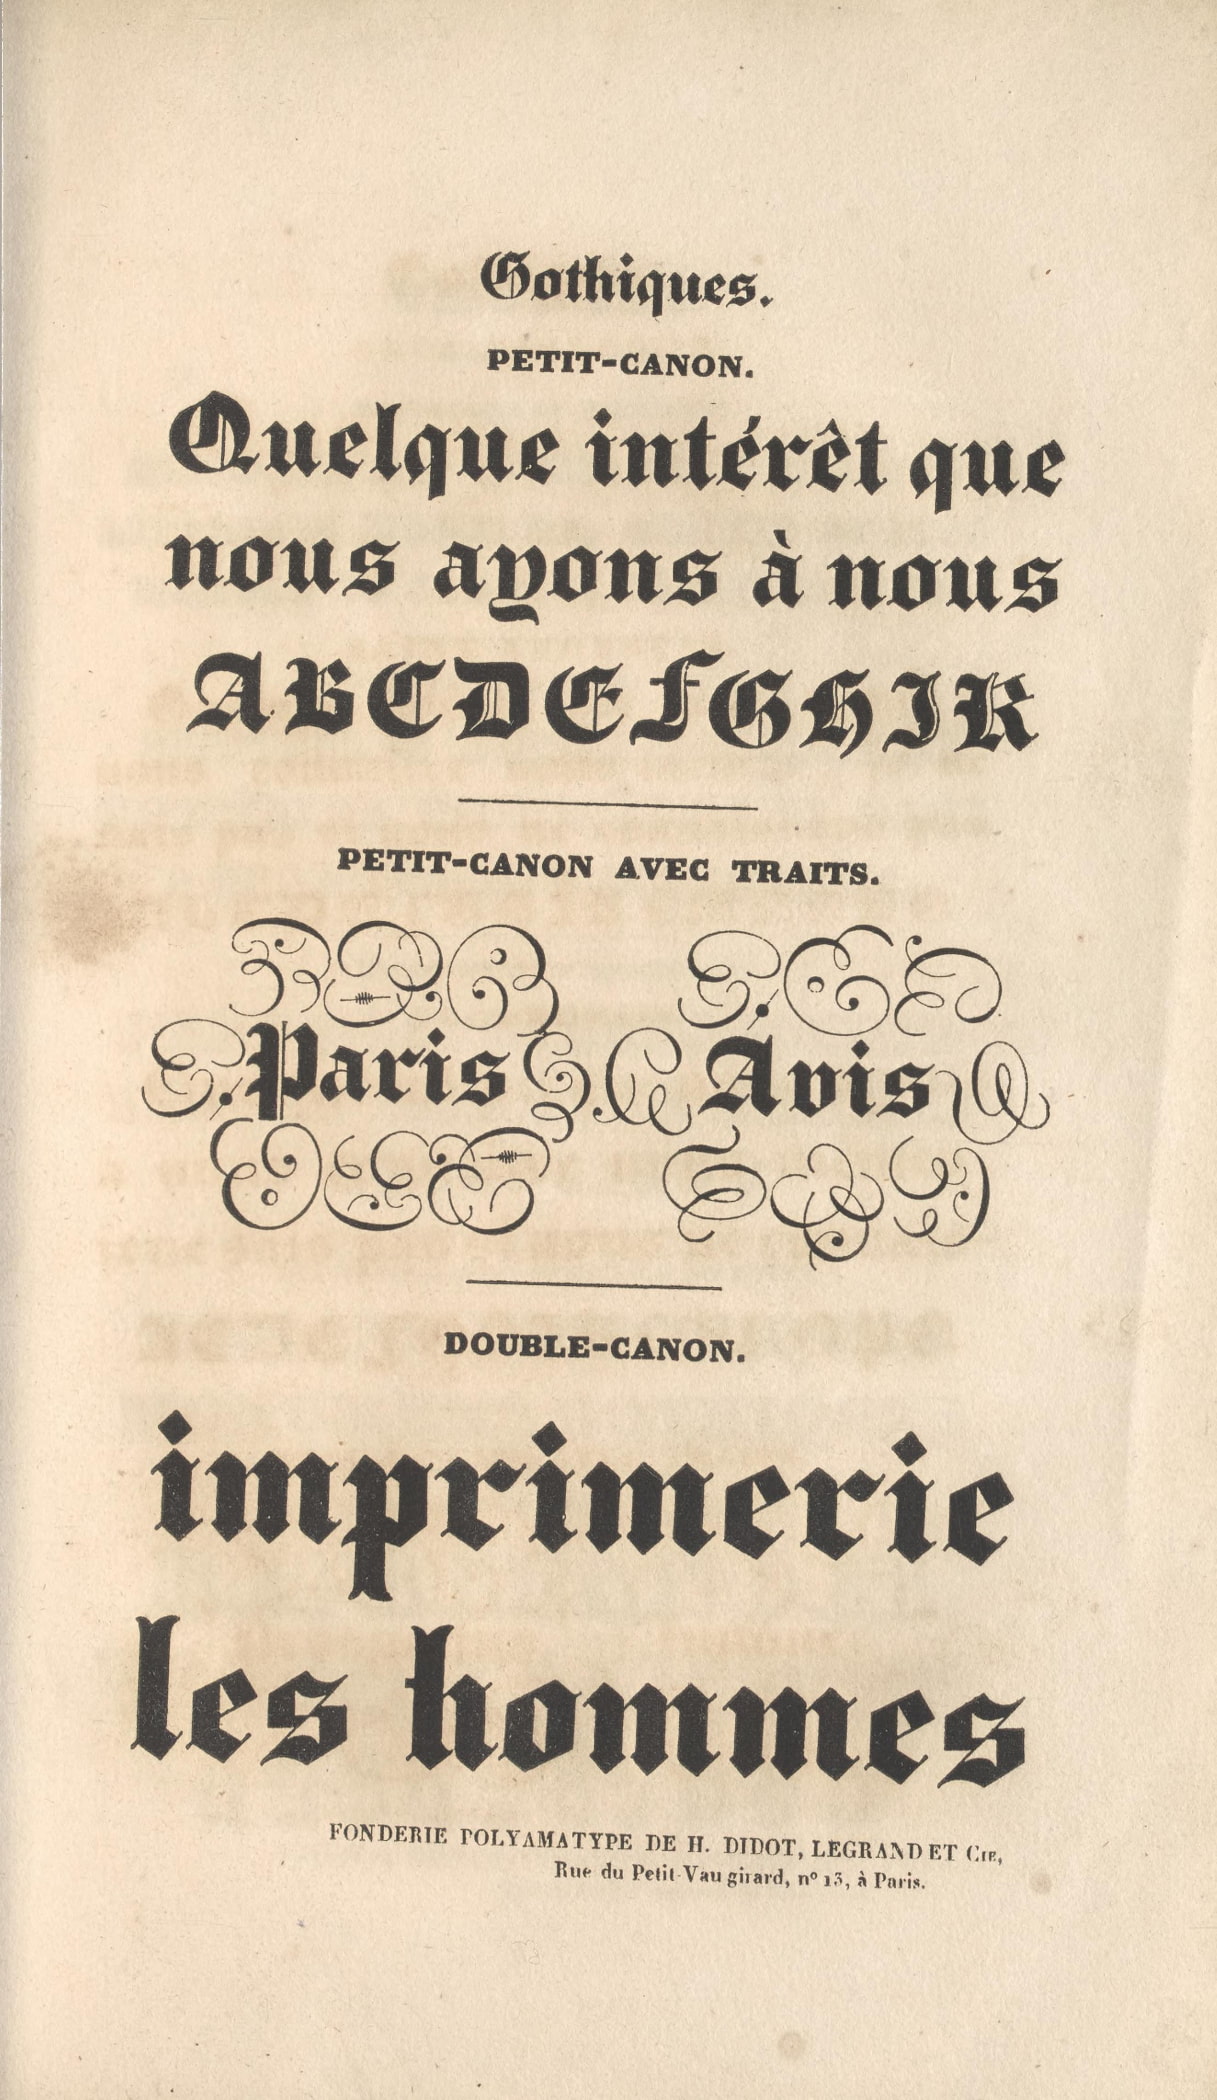 Gothiques.
PETIT-CANON.
Quelque intérêt que
nous ayons à nous
ABCDEFGHIK
PETIT-CANON AVEC TRAITS.
Paris Avis
DOUBLE-CANON.
imprimerie
les hommes
FONDERIE POLYAMATYPE DE H. DIDOT, LEGRAND ET CIE,
Rue du Petit-Vaugirard, nº 13, à Paris.